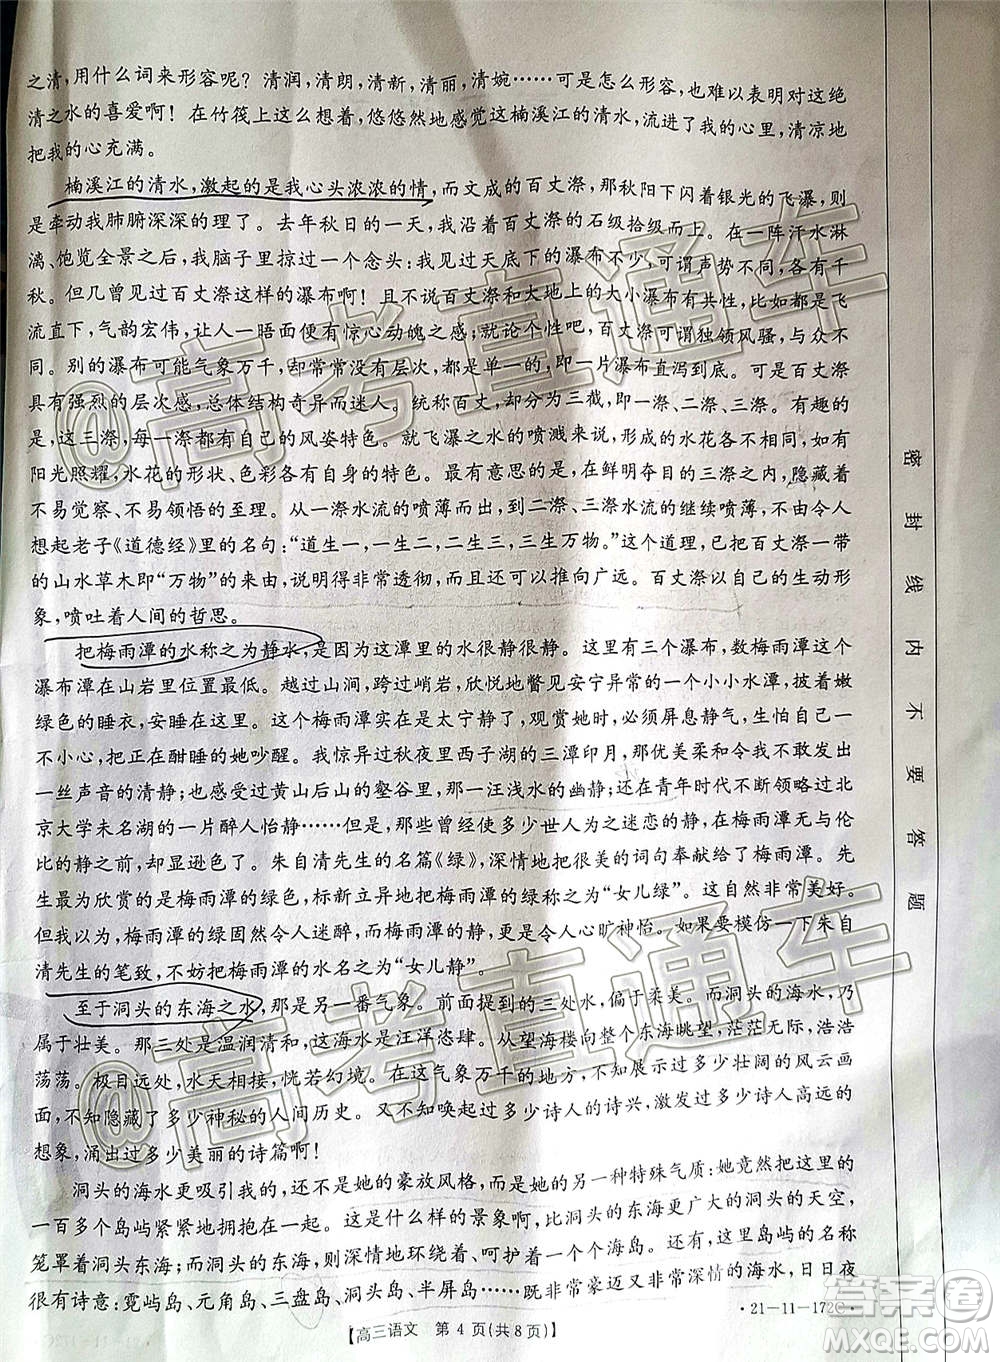 之清，用什么词来形容呢？清润，清朗，清新，清丽，清婉……可是怎么形容，也难以表明对这绝
清之水的喜爱啊！在竹筏上这么想着，悠悠然地感觉这楠溪江的清水，流进了我的心里，清凉地
把我的心充满。
楠溪江的清水，激起的是我心头浓浓的情，而文成的百丈漈，那秋阳下闪着银光的飞瀑，则
是牵动我肺腑深深的理了。去年秋日的一天，我沿着百丈漈的石级拾级而上。在一阵汗水淋
漓、饱览全景之后，我脑子里掠过一个念头：我见过天底下的瀑布无数，可谓声势不同，各有千
秋。但几曾见过百丈漈这样的瀑布啊！且不说百丈漈和大地上的大小瀑布有共性，比如都是飞
流直下，气韵宏伟，让人一晤面便有惊心动魄之感；就论个性吧，百丈漈可谓独领风骚，与众不
同。别的瀑布可能气象万千，却常常没有层次，都是单一的，即一片瀑布直泻到底。可是百丈漈
具有强烈的层次感，总体结构奇异而迷人。统称百丈，却分为三截，即一漈、二漈、三漈。有趣的
是，这三漈，每一漈都有自己的风姿特色。就飞瀑之水的喷溅来说，形成的水花各不一样，如有
阳光照耀，水花的形状、色彩各有自身的特色。最有意思的是，在鲜明夺目的三漈之内，隐藏着
不易觉察、不易领悟的至理。从一漈水流的喷薄而出，到二漈、三漈水流的继续喷薄，不由令人
想起老子《道德经》里的名句：“道生一，一生二，二生三，三生万物。”这个道理，已把百丈漈一带
的山水草木即“万物”的来由，说明得非常透彻，而且还可以推向广远。百丈漈以自己的生动形
象，喷吐着人间的哲思。
把梅雨潭的水称之为静水，是因为这潭里的水很静很静。这里有三个瀑布，数梅雨潭这个
瀑布潭在山岩里位置最低。越过山涧，跨过峭岩，欣悦地瞥见安宁异常的一个小小水潭，披着嫩
绿色的睡衣，安睡在这里。这个梅雨潭实在是太宁静了，观赏她时，必须屏息静气，生怕自己一
不小心，把正在酣睡的她吵醒。我惊异过秋夜里西子湖的三潭印月，那优美柔和之夜没有发出
一丝声音的清静；也感受过黄山后山的壑谷里，那一汪浅浅水的幽静；在青年时代不断领略过北
京大学未名湖的一片醉人怡静……但是，那些曾经使多少世人为之迷恋的静，在梅雨潭无与伦
比的静之前，却显逊色了。朱自清先生的名篇《绿》，深情地把很美的词句奉献给了梅雨潭。先
生最为欣赏的是梅雨潭的绿色，标新立异地把梅雨潭的绿称之为“女儿绿”。这自然非常美好。
但我以为，梅雨潭的绿固然令人迷醉，而梅雨潭的静，更令人心旷神怡。如果要模仿一下朱自
清先生的笔致，不妨把梅雨潭的水名之为“女儿静”。
至于洞头的东海之水，那是另一番气象。前面提到的三处水，偏于柔美。而洞头的海水，乃
属于壮美。那三处是温润清和，这海水是汪洋恣肆。从望海楼向东海眺望，茫茫无际，浩浩
荡荡。极目远处，水天相接，恍若幻境。在这气象万千的地方，发生过多少壮阔的风云画
面，不知隐藏了多少神秘的人间历史。又不知唤起过多少诗人的诗兴，激发过多少诗人高远的
想象，涌出过多少美丽的诗篇啊！
洞头的海水更吸引我的，还不是她的豪放风格，而是她的另一种特殊气质：她竟然把这里的
一百多个岛屿紧紧地拥抱在一起。这是什么样的景象啊，比洞头的东海更广大的洞头的天空，
笼罩着洞头东海；而洞头的东海，则深情地环绕着、呵护着一个个海岛。还有，这些岛屿的名称
很有诗意：霓屿岛、元角岛、三盘岛、洞头岛、半屏岛……既非常豪迈又非常深情的海水，日日夜夜
·21-11-172C·
【高三语文　第4页(共8页)】
密封线内不要答题
@高考直通车
@高考直通车
答案圈
MXQE.COM